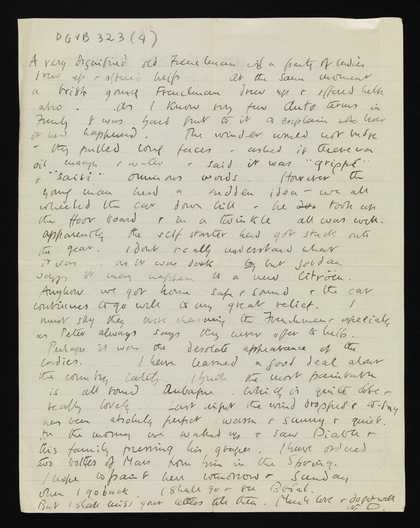 DGVB 323 (4)
A very dignified old Frenchman & a party of ladies
drew up & offered help. At the same moment
a brisk young Frenchman drew up & offered help
also. As I know very few Auto terms in
French it was hard put to it to explain what
it had happened. The winder would not budge
& they pulled long faces & asked if there was
oil enough & water & said it was "grippé"
& ominous words. However the
young man had a sudden idea - we all
wheeled the car down hill & he took up
the floor board & in a twinkle all was well.
Apparently the self starter had got stuck onto
the gear. I dont really understand what
it was as it was dark but
says it may happen to a new Citroën.
Anyhow we got home safe & sound & the car
continues to go well to my great relief. I
must say they were charming the Frenchmen especially
as Peter always says they never offer to help.
Perhaps it was the desolate appearance of the
ladies. I have learned a good deal about
the country lately. I think the most
is all round Aubagne. Which is quite close &
really lovely. Last night the wind dropped & to-day
has been absolutely perfect warm & sunny & quiet.
In the morning we walked up & saw &
his family pressing his grapes. I have ordered
two bottles of Marc from him in the Spring.
I hope to paint here tomorrow & Sunday
when I go back. I shall go
But I shall miss your letters till then. Much love &
D.